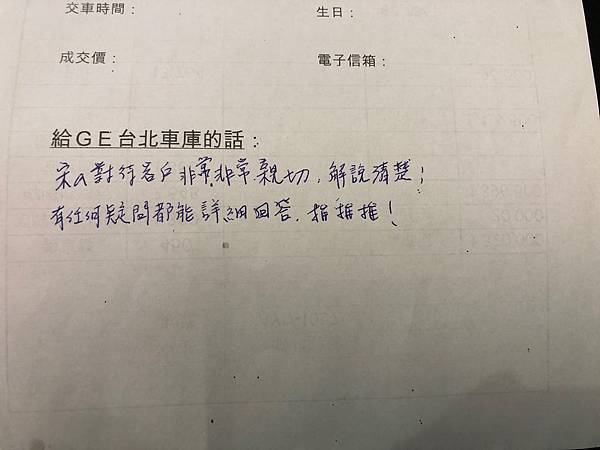 交車時間： 生日：
成交價： 電子信箱：
給GE台北車庫的話：
宋a對待客戶非常非常親切，解說清楚；
有任何疑問都能詳細回答，推推推！